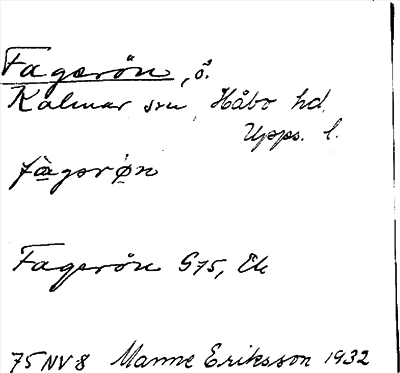 Fagerön, ö.
Kalmar sn, Håbo hd.
Upps. l.
fàgərøn
Fagerön G75, Ek
75 NV 8 Manne Eriksson 1932